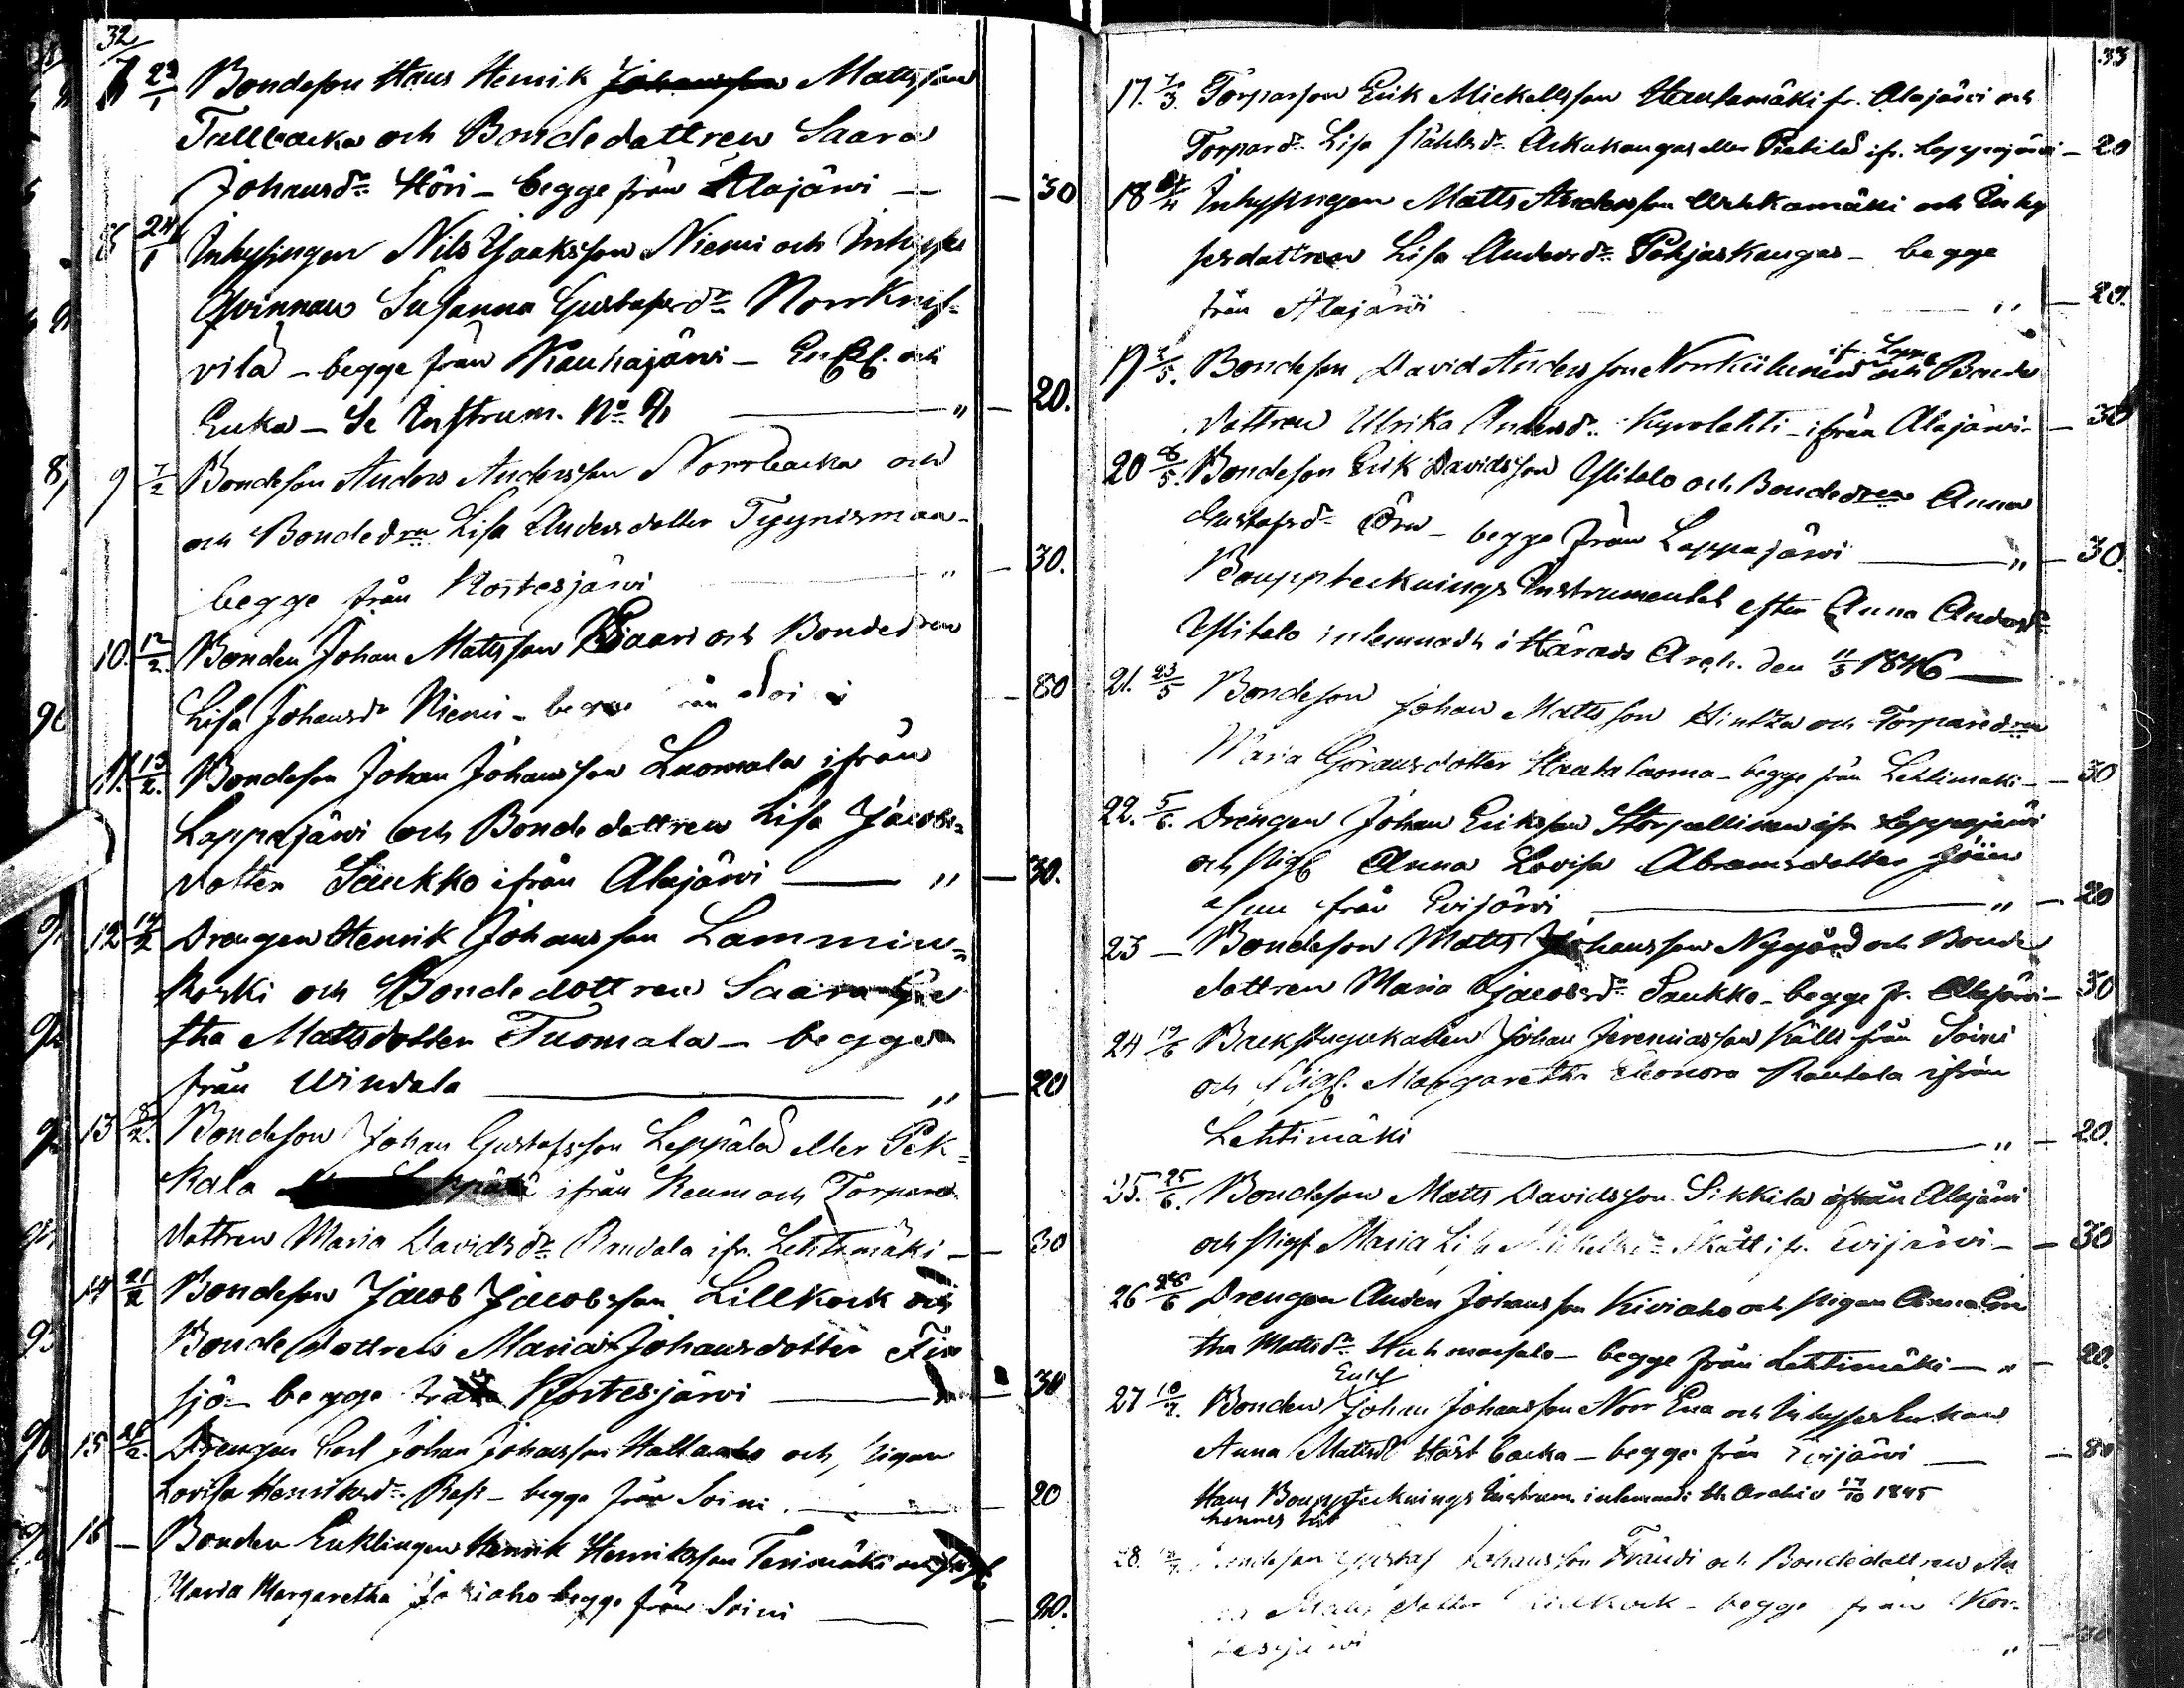 32
7 23/1 Bondeson Hans Henrik Johansson Mattsson
Tallbacka och Bondedottren Saara
Johansdr Höri - begge från Alajärvi — — 30
8 24/1 Inhysingen Nils Isaksson Niemi och Inhyses
Qvinnan Susanna Gustafsdr Norrknif-
vilä - begge från Kauhajärvi - Enkl. och
Enka - Se Instrum. No — " — 20.
9 7/2 Bondeson Anders Andersson Norrbacka och
och Bondedrn Lisa Andersdotter Tyynismaa -
begge från Kortesjärvi " — 30.
10. 12/2 Bonden Johan Mattsson och Bondedrn
Lisa Johansdr Niemi - begge från Soini — 80
11. 13/2. Bondeson Johan Johansson Luomala ifrån
Lappajärvi och Bondedottren Lisa Jacobs-
dotter Saukko ifrån Alajärvi — " — 30.
12 14/2 Drengen Henrik Johansson Lammin-
koski och Bondedottren Saara
tha Mattsdotter Tuomala - begge
från Windala — " — 20
13 18/2. Bondeson Johan Gustafsson Leppälä eller Pek-
kala ifrån Keum och Torpare
dottren Maria Davidsdr Randala ifr. Lehtimäki — — 30
14 21/2 Bondeson Jacob Jacobsson Lillkock och
Bondedottren Maria Johansdotter Fin
sjö - begge från Kortesjärvi — — 30
15 28/2. Drengen Carl Johan Johansson Hallaaho och Pigan
Lovisa Henriksdr Rasi - begge från Soini — — 20
16 — Bonden Enklingen Henrik Henriksson Terimäki och Pig.
Maria Margaretha begge från Soini — — 40.
33
17. 7/3. Torparson Erik Mickelsson Hautamäki fr. Alajärvi och
Torpardr Lisa Ståhlsdr Askukangas eller Pietilä ifr. Lappajärvi — 20
18 /4 Inhysingen Matts Andersson Uhkamäki och Inhy
sesdottren Lisa Andersdr Pohjaskangas - begge
från Alajärvi " — 20.
ifr. Lapp
19. 2/5. Bondeson David Andersson Norrkiilunen och Bonde
dottren Ulrika Andersdr Kyrolahti - ifrån Alajärvi - — 30
20 8/5. Bondeson Erik Davidsson Ylitalo och Bondedren Anna
Gustafsdr Örn - begge från Lappajärvi — " — 30.
BouppteckningsInstrumentet efter Anna Andersdr
Ylitalo inlemnadt i Härads Arch. den 11/3 1846 —
21. 23/5 Bondeson Johan Mattsson Hintza och Torparedren
Maria Göransdotter Haataluoma - begge från Lehtimäki - — 30
22. 5/6. Drengen Johan Eriksson Storpellinen ifr Lappajärvi
och Pig. Anna Lovisa Abramsdotter
från Evijärvi — " — 20
23 — Bondeson Matts Johansson Nygård och Bonde
dottren Maria Jacobsdr Saukko - begge fr. Alajärvi - 30
24 19/6 Backstugukarlen Johan Jeremiasson Källi från Soini
och Pig. Margaretha Eleonora Rantala ifrån
Lehtimäki — " — 20.
25. 25/6. Bondeson Matts Davidsson Sikkilä ifrån Alajärvi
och Pig. Maria Lisa Mickelsdr Skått ifr. Evijärvi - — 30
26 28/6 Drengen Anders Johansson Kiviaho och Pigan Anna Gre
tha Mattsdr Huhmarsalo - begge från Lehtimäki — " — 20.
Enkl
27 10/7. Bonden Johan Johansson Norr Ena och InhysesEnkan
Anna Mattsd Hästbacka - begge från Evijärvi — — 80
Hans Bouppteckningsinstrum. inlemnadt Archiv 17/10 1845
hennes
28. Bondeson Gustaf Johansson Frändi och Bondedottren An
na Mattsdotter Lillkock - begge från Kor-
tesjärvi " — 30